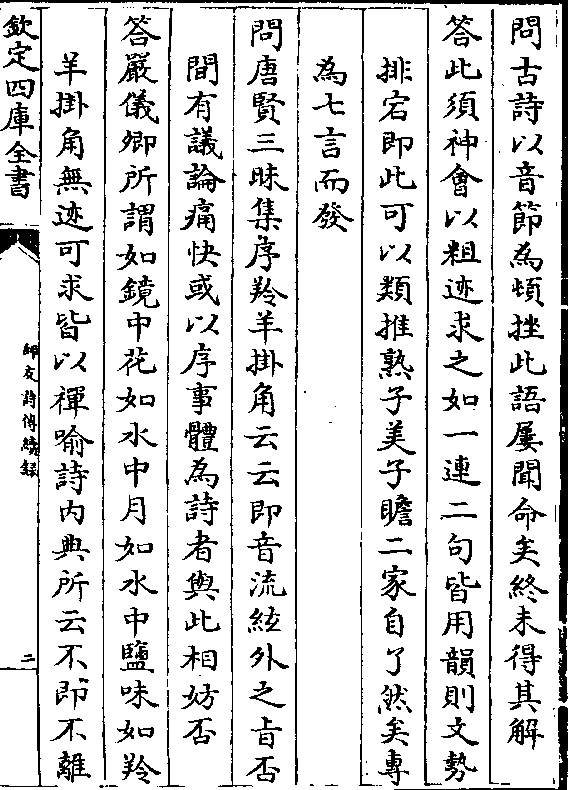 問古詩以音節為頓挫此語屢聞命矣終未得其解
答此須神會以粗迹求之如一連二句皆用韻則文勢
排宕即此可以類推熟子美子瞻二家自了然矣專
為七言而發
問唐賢三昧集序羚羊掛角云云即音流絃外之旨否
間有議論痛快或以序事體為詩者與此相妨否
答嚴儀卿所謂如鏡中花如水中月如水中鹽味如羚
羊掛角無迹可求皆以禪喻詩内典所云不即不離
欽定四庫全書
師友詩傳續録
二